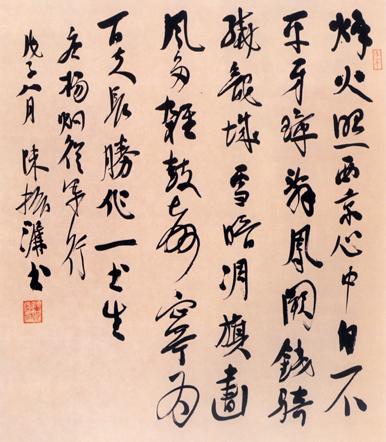 烽火照西京心中自不
平牙璋辭鳳闕鐵騎
繞龍城雪暗凋旗畫
風多雜鼓聲寧為
百夫長勝作一書生
唐楊炯從軍行
戊子八月陳振濂書